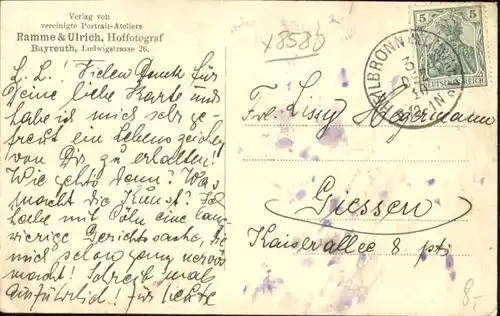 Verlag von
vereinigte Portrait-Ateliers
Ramme & Ulrich, Hoffotograf
Bayreuth, Ludwigstrasse 26.
x8580
5 5
DEUTSCHES REICH
HEILBRONN
L. L.! Vielen Dank für
Deine liebe Karte und
habe ich mich sehr ge-
freut ein Lebenszeichen
von Dir zu erhalten!
Wie gehts denn? Was
macht die Kunst? Ich
habe mit Cöln eine lang
wierige Gerichtssache, die
mich schon ganz nervös
macht! Schreib mal
ausführlich! für heute
Frl. Lissy Hegermann
Giessen
Kaiserallee 8 pt.
8,-